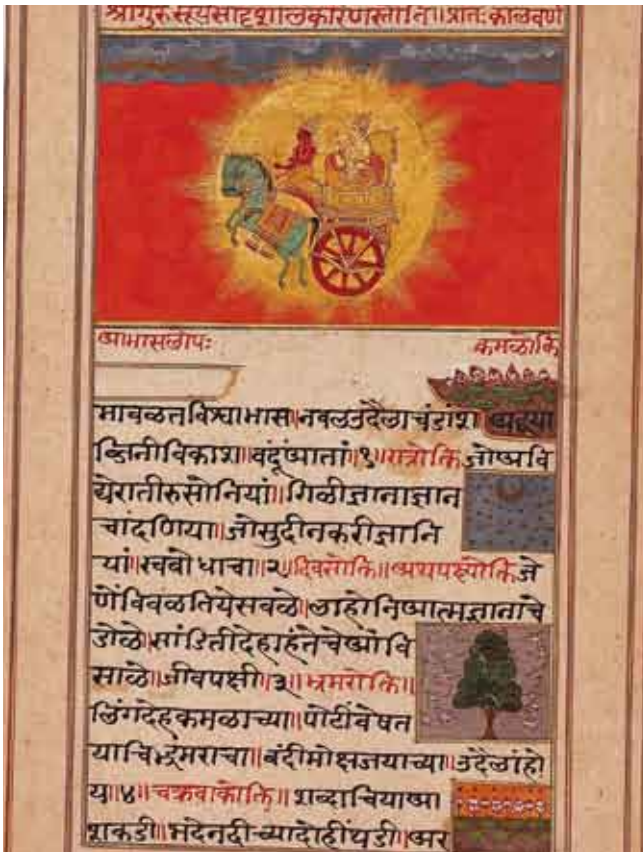 श्रीगुरुसूर्यसादृशालंकारेणस्तौति॥प्रातःकाळवर्णन
आभासलोपः
कमळोक्ति
मावळतविश्वाभास॥नवलउदैलाचंडांश अद्वया
ब्जिनीविकाश॥वंदूंआतां॥१॥रात्रोक्ति जोअवि
द्येरातीरुसोनियां॥गिळीज्ञानाज्ञान
चांदणिया॥जोसुदीनकरीज्ञानि
यां॥स्वबोधाचा॥२॥दिवसोक्ति॥अथपक्ष्योक्ति जे
णेंविवळतियेसवळे॥लाहोनिआत्मज्ञानाचे
डोळे॥सांडितीदेहाहंतेचेअवि
साळे॥जीवपक्षी॥३॥भ्रमरोक्ति॥
लिंगदेहकमळाच्या॥पोटींवेषत
याचिद्भ्रमराचा॥बंदीमोक्षजयाच्या॥उदैलांहो
य॥४॥चक्रवाकोक्ति॥शब्दाचियाआ
शकडी॥भेदनदीच्यादोहींथडी॥अर